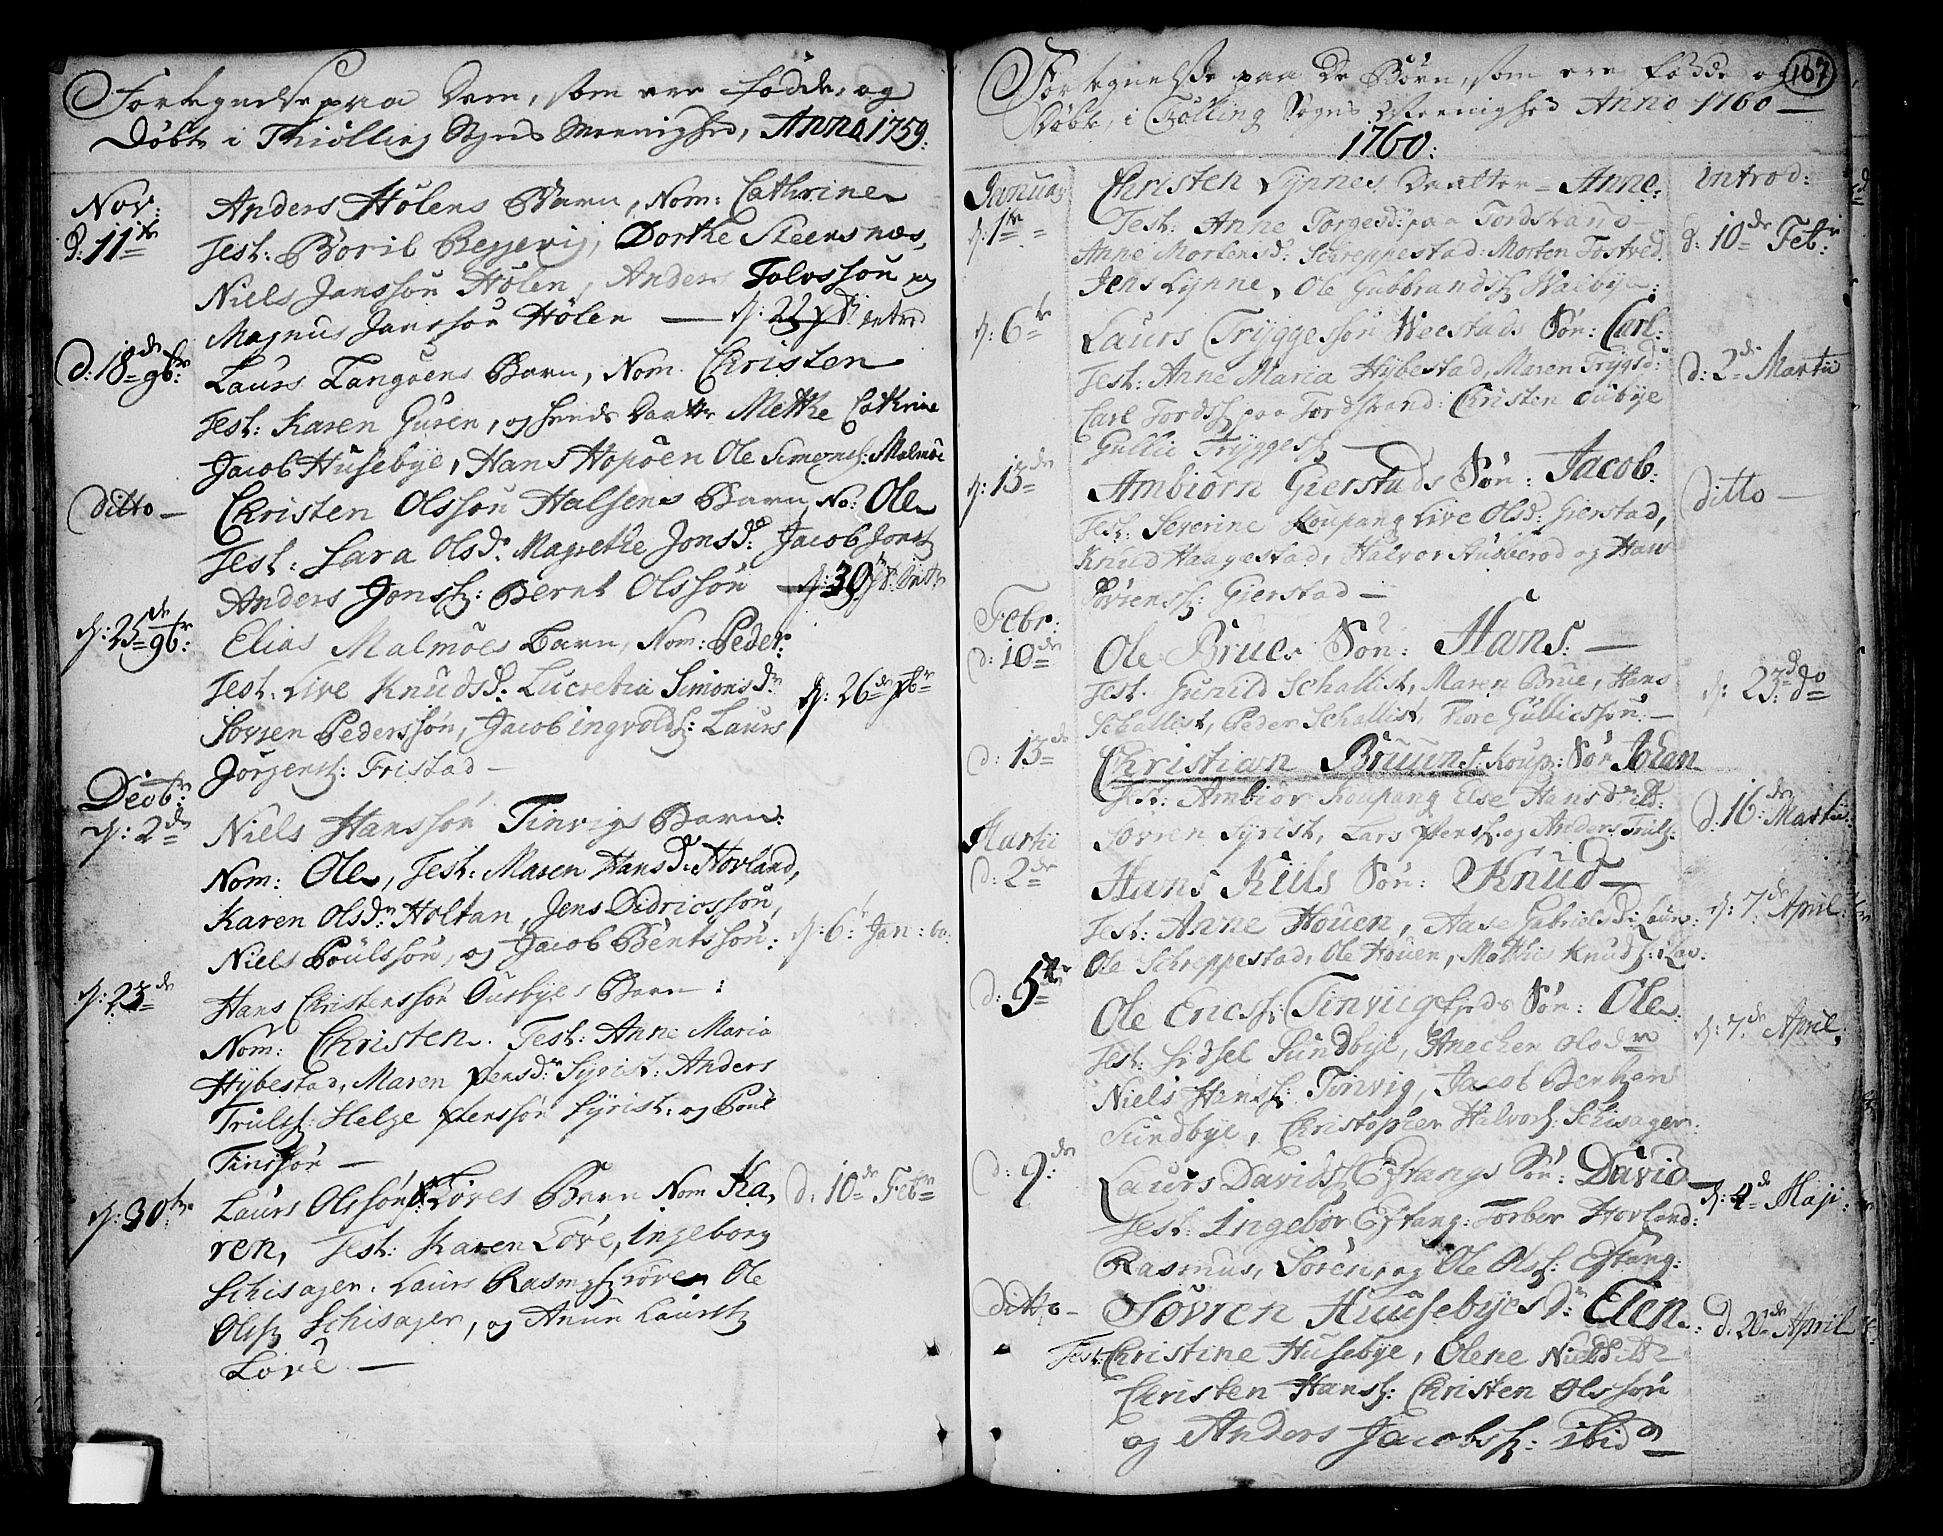 Fortegnelse paa Dem, som ere fødde, og
Døbte i Thiølling Sogns Meenighed, Anno 1759.
Nov:
d: 11te
Anders Hølens Barn, Nom: Cathrine
Test: Boril Beggevig, Dorthe Steensnæs,
Niels Janssøn Hølen, Anders Tolvssøn og
Magnus Janssøn Hølen — d: 22 xbr introd
d: 18de 9br:
Laurs Langøens Barn, Nom. Christen
Test: Karen Guren, og hends Daatter Mette Cathrine
Jacob Husebÿe, Hans Hopøen Ole Simonss: Malmøe
Ditto —
Christen Olssøn Halsens Barn, No: Ole
Test: Sara Olsdr. Magrethe Jonsd: Jacob Jonss
Anders Jonss: Bernt Olssøn — d: 30 xbr Intr
d: 25de 9br:
Elias Malmøes Barn, Nom: Peder.
Test: Live Knudsd. Lucretia Simonsdr
Sørren Pederssøn, Jacob ingvoldss: Laurs
Jørgenss: Fristad —
d: 26de xbr
Decbr:
d: 2de
Niels Hanssøn Tinvigs Barn:
Nom: Ole, Test: Maren Hansd: Hovland,
Karen Olsdr Holtan, Jens Didricssøn,
Niels Poulssøn, og Jacob Bentssøn:
d: 6t Jan: 60.
d: 23de
Hans Christenssøn Ousbÿes Barn:
Nom: Christen. Test: Anne Maria
Hÿbestad, Maren Pensdr Sÿrist: Anders
Trulss: Helge Penssøn Sÿrist: og Poul
Tinssøn —
d: 30te
Laurs Olssøn Løves Barn Nom Ka-
ren, Test: Karen Løve, Ingeborg
Schisager, Laurs Rasmss Løve Ole
Olss Schisager, og Anun Laurss
Løve —
d: 10de Febr
167
Fortegnelse paa De Børn, som ere fødde og
Døbte, i Tiølling Sogns Meenighed Anno 1760 —
1760:
Januar
d: 1te
Christen Lÿnnes Daatter — Anne.
introd:
Test: Anne Torgesd: paa Tordstrand
Anne Mortensd: Schreppestad: Morten Tostved
Jens Lÿnne, Ole Gubbrandss Walbÿe:
d: 10de Febr:
d: 6te
Laurs Trÿggessøn Weestads Søn: Carl:
Test: Anne Maria Hÿbestad, Maren Trÿgsd:
Carl Tordss paa Tordstrand: Christen oubÿe
Gullie Trÿggess
d: 2de Martii
d: 13de
Ambiørn Gierstads Søn: Jacob:
Test: Severine Koupang Live Olsd: Gierstad,
Knud Haagestad, Halvor Stubberod og Hans
Sørenss: Gierstad —
Ditto —
Febr:
d: 10de
Ole Brues Søn: Hans: —
Test. Gunild Schallist, Maren Brue, Hans
Schallist, Peder Schallist, Tore Gulliessøn: —
d: 23d do
d: 13de
Christian Bruuns Koup: Søn Johan
Test: Ambiør Koupang Else Hansd. ibd:
Sørren Sÿrist, Lars Penss og Anders Trulss:
d: 16de Martii:
Martii
d: 2de
Hans Kiils Søn: Knud —
Test: Anne Houen, Aase Gabrielsd:
Ole Schreppestad, Ole Houen, Mathis Knudss: Lau.
d: 7de April:
d: 5te
Ole Ericss: Tinvigfieds Søn: Ole.
Test: Sidsel Sundbÿe, Anechen Olsdr
Niels Hanss: Tinvig, Jacob Bentsen
Sundbÿe, Christopher Halvorss: Schisager.
d: 7de April.
d: 9de
Laurs Davidss Eftangs Søn: David
Test: Ingebor Eftang: Torber Hovland:
Rasmus, Søren, og Ole Olss: Eftang:
d: 4de Maji:
Ditto —
Sørren Huusebÿes Dr: Elen.
Test: Christine Husebÿe, Olene Nielsd ibd
Christen Hanss: Christen Olssøn
og Anders Jacobss: ibid
d. 20de April